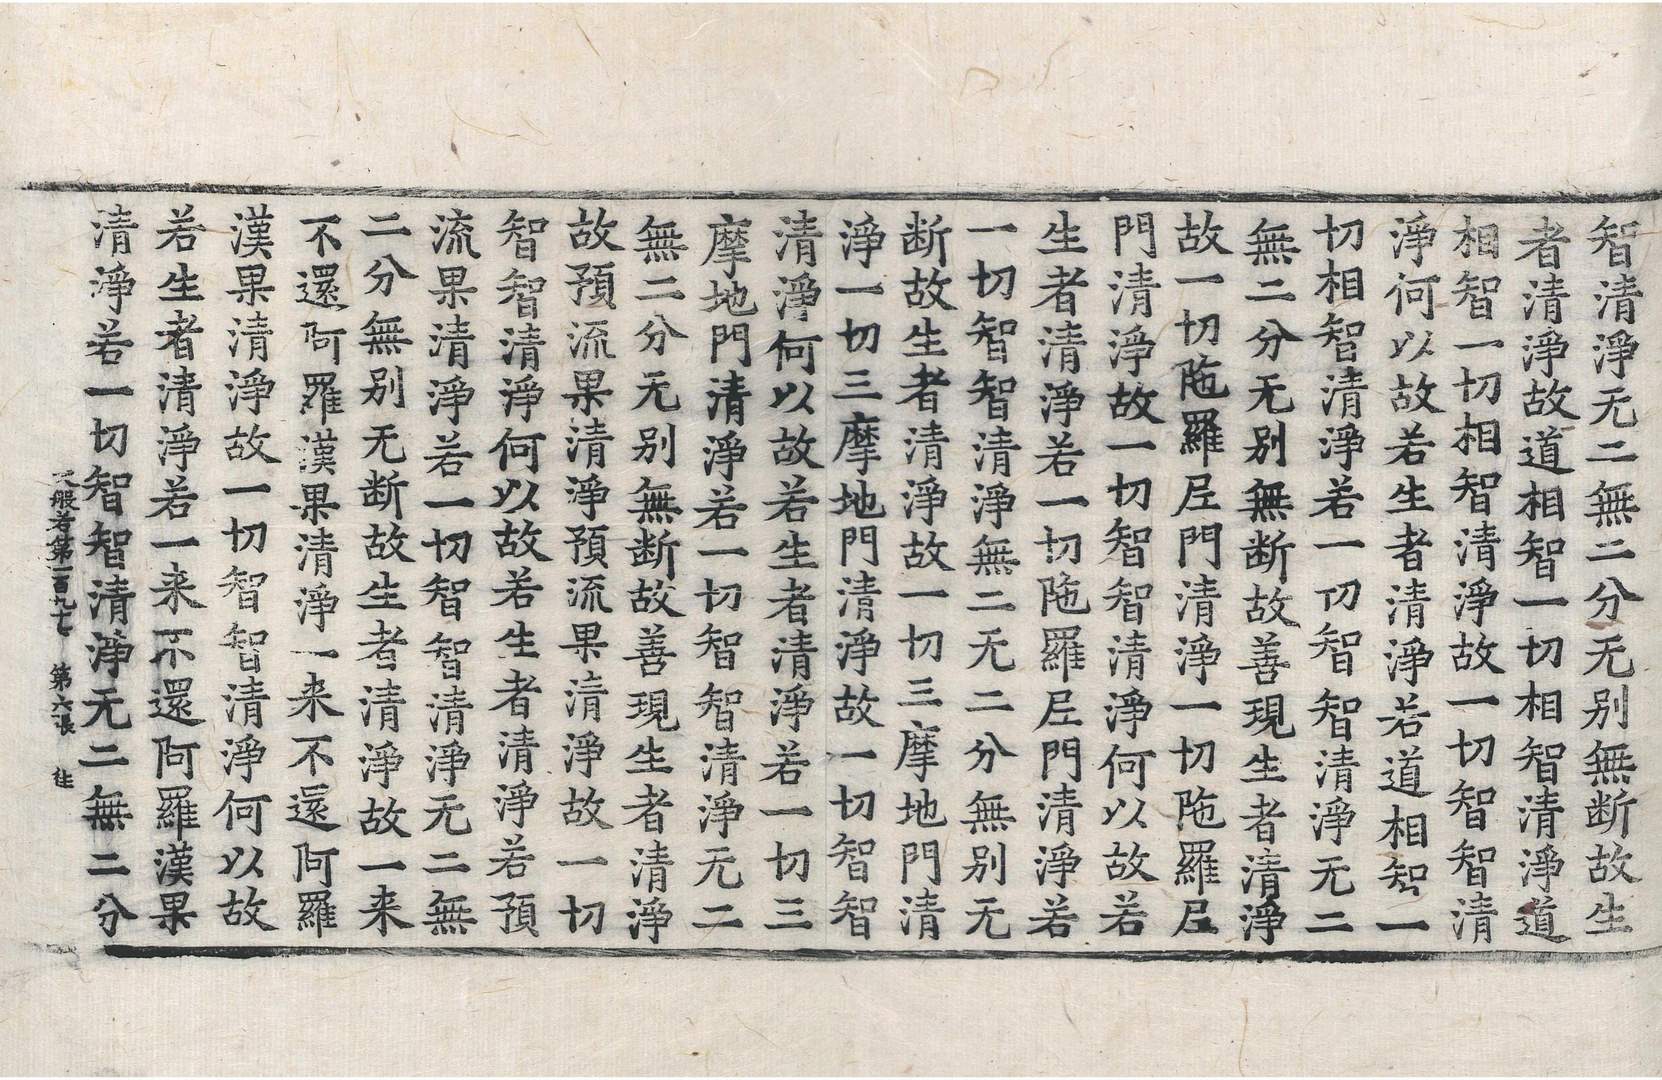 智清淨无二無二分无别無断故生
者清淨故道相智一切相智清淨道
相智一切相智清淨故一切智智清
淨何以故若生者清淨若道相智一
切相智清淨若一切智智清淨无二
無二分无别無断故善現生者清淨
故一切陁羅尼門清淨一切陁羅尼
門清淨故一切智智清淨何以故若
生者清淨若一切陁羅尼門清淨若
一切智智清淨無二无二分無别无
断故生者清淨故一切三摩地門清
淨一切三摩地門清淨故一切智智
清淨何以故若生者清淨若一切三
摩地門清淨若一切智智清淨无二
無二分无别無断故善現生者清淨
故預流果清淨預流果清淨故一切
智智清淨何以故若生者清淨若預
流果清淨若一切智智清淨无二無
二分無别无断故生者清淨故一来
不還阿羅漢果清淨一来不還阿羅
漢果清淨故一切智智清淨何以故
若生者清淨若一来不還阿羅漢果
清淨若一切智智清淨无二無二分
大般若第一百九七 第六張 往